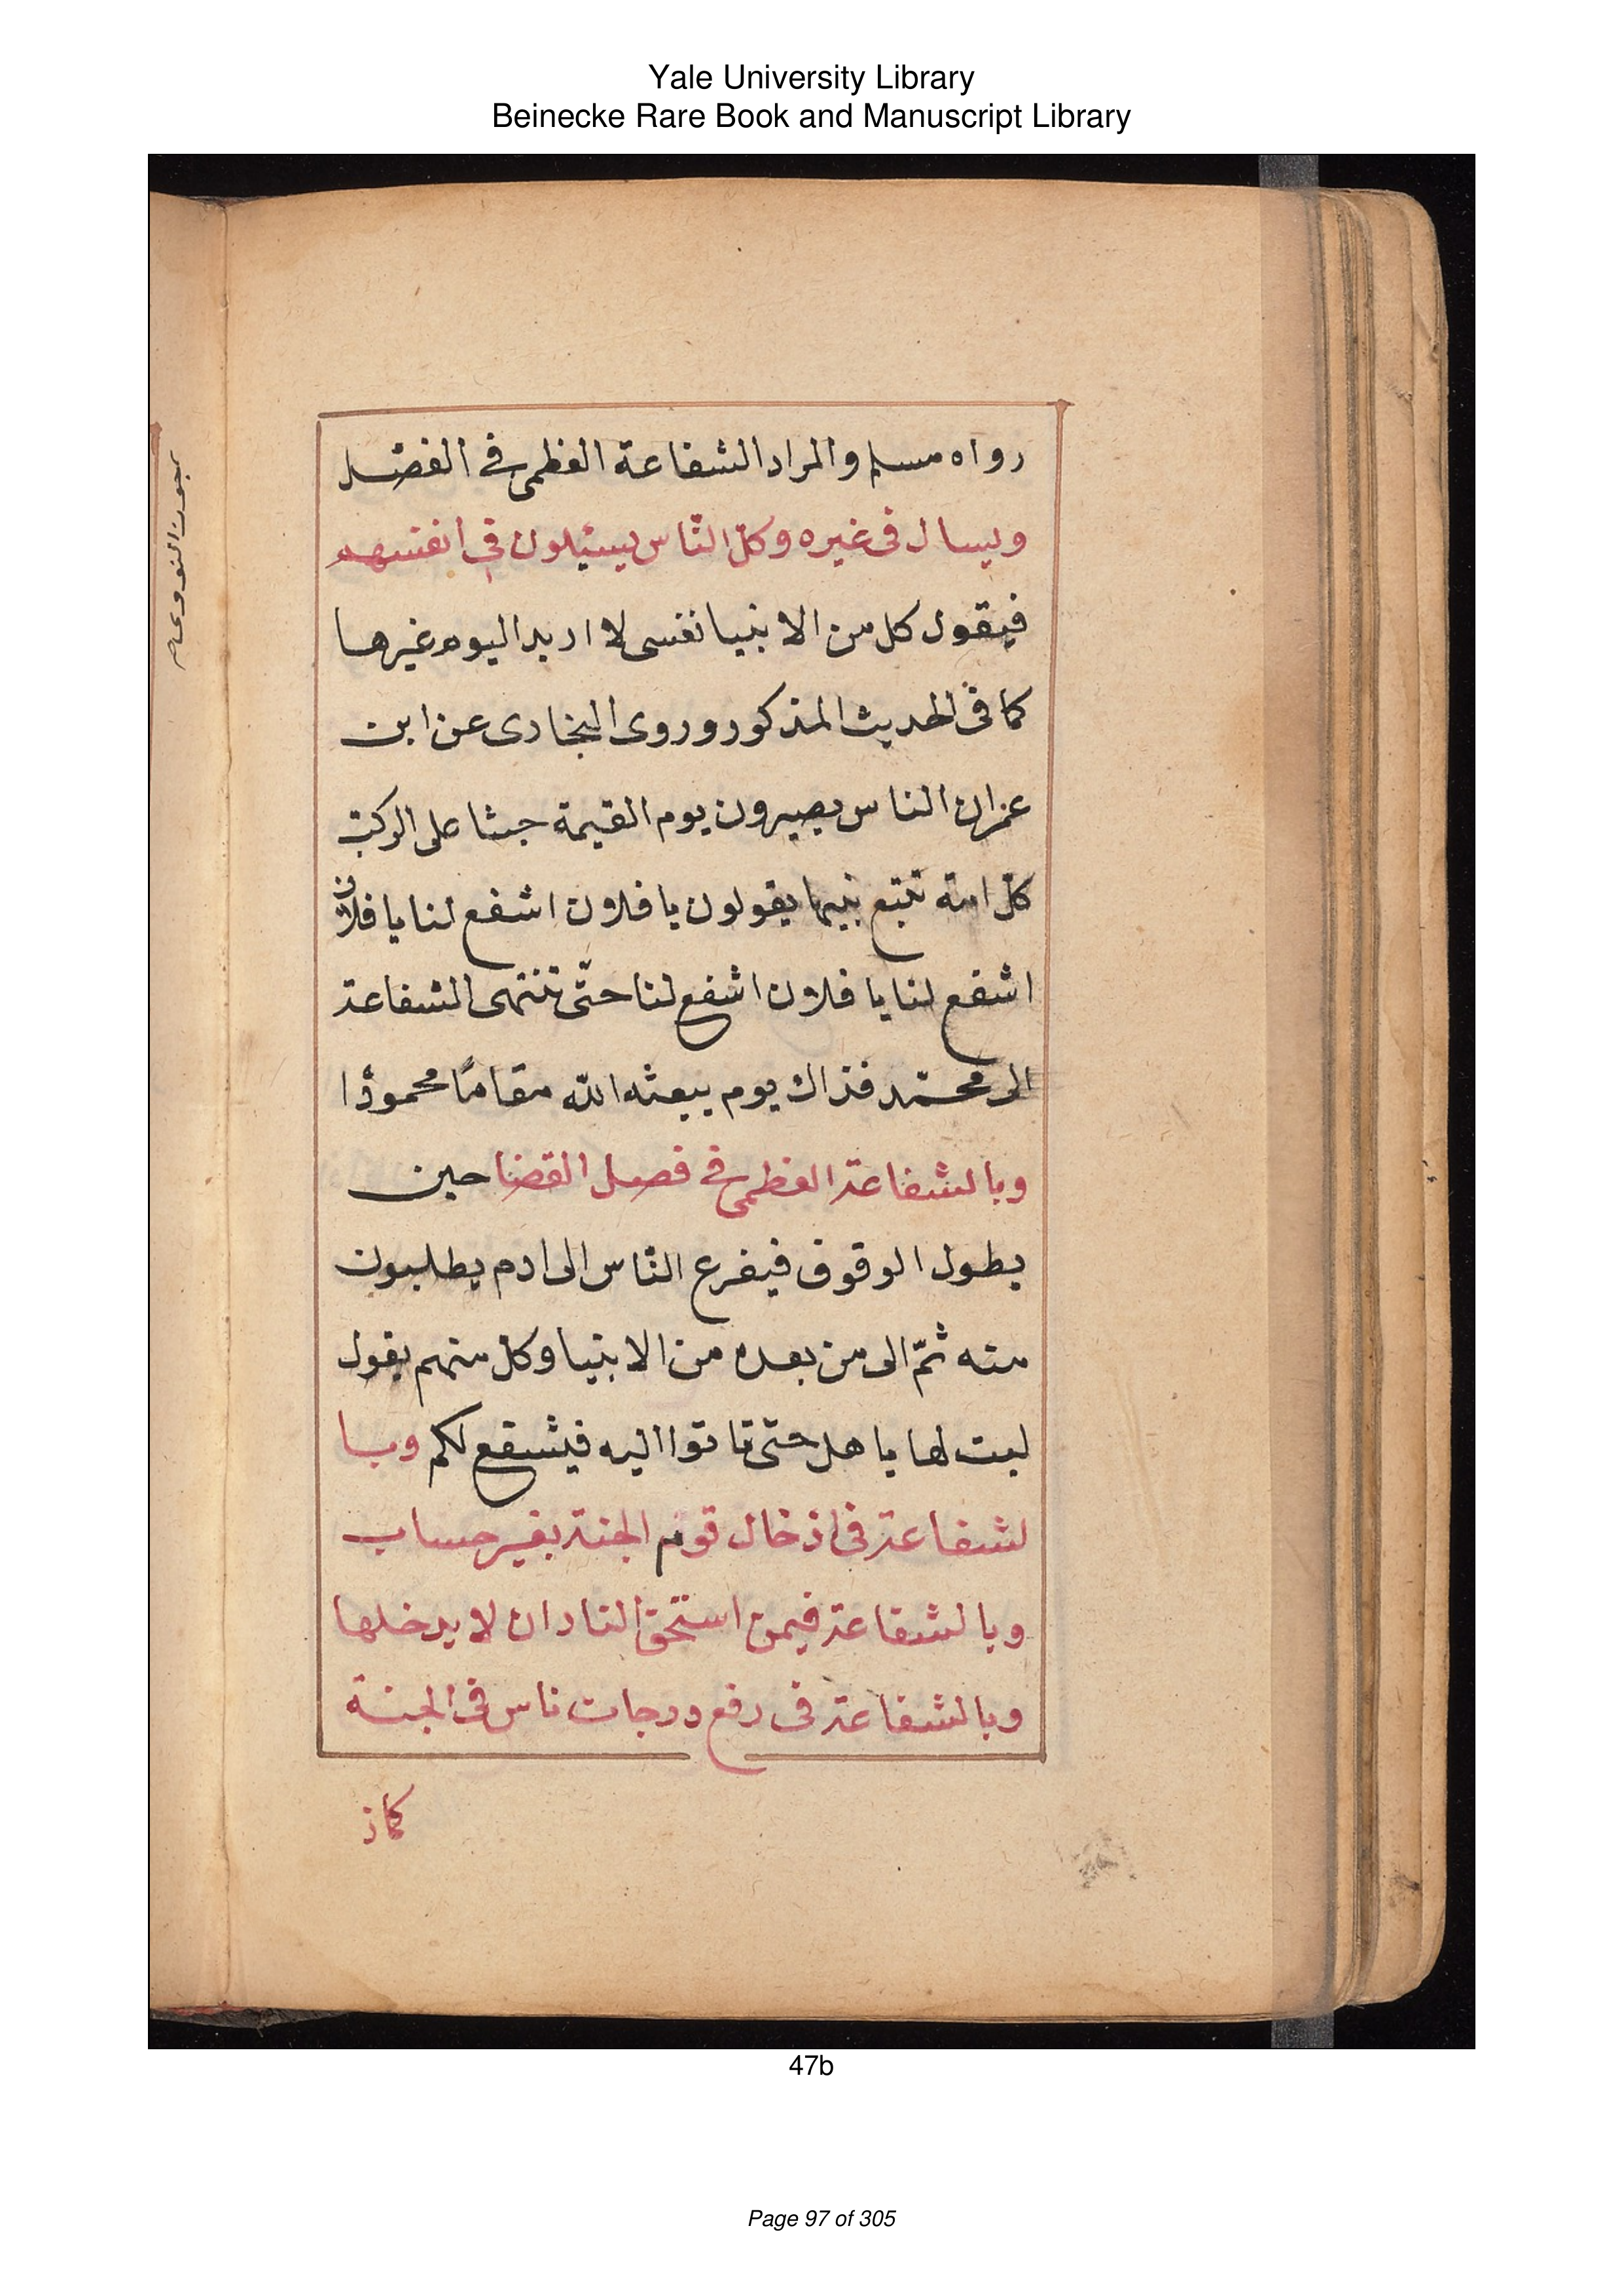 Yale University Library
Beinecke Rare Book and Manuscript Library
رواه مسلم والمراد الشفاعة العظمى في الفضل
ويسال فى غيره وكلّ النّاس يسئلون في انفسهم
فيقول كل من الانبيا نفسى لا اريد اليوم غيرها
كما فى الحديث المذكور وروى البخارى عن ابن
عمران الناس يصيرون يوم القيمة جثا على الركب
كلّ امة تتبع نبيها يقولون يا فلان اشفع لنا يا فلان
اشفع لنا يا فلان اشفع لنا حتّى تنتهى الشفاعة
الى محمّد فذاك يوم يبعثه اللّه مقامًا محمودًا
وبالشفاعة العظمى في فصل القضا حين
يطول الوقوف فيفرع النّاس الى ادم يطلبون
منه ثمّ الى من بعده من الانبيا وكل منهم يقول
لست لها باهل حتى تاتوا اليه فيشفع لكم وبا
لشفاعة فى اذخال قوم الجنة بغير حساب
وبالشفاعة فيمن استحق النار ان لا يدخلها
وبالشفاعة فى رفع درجات ناس فى الجنة
كماذ
47b
Page 97 of 305